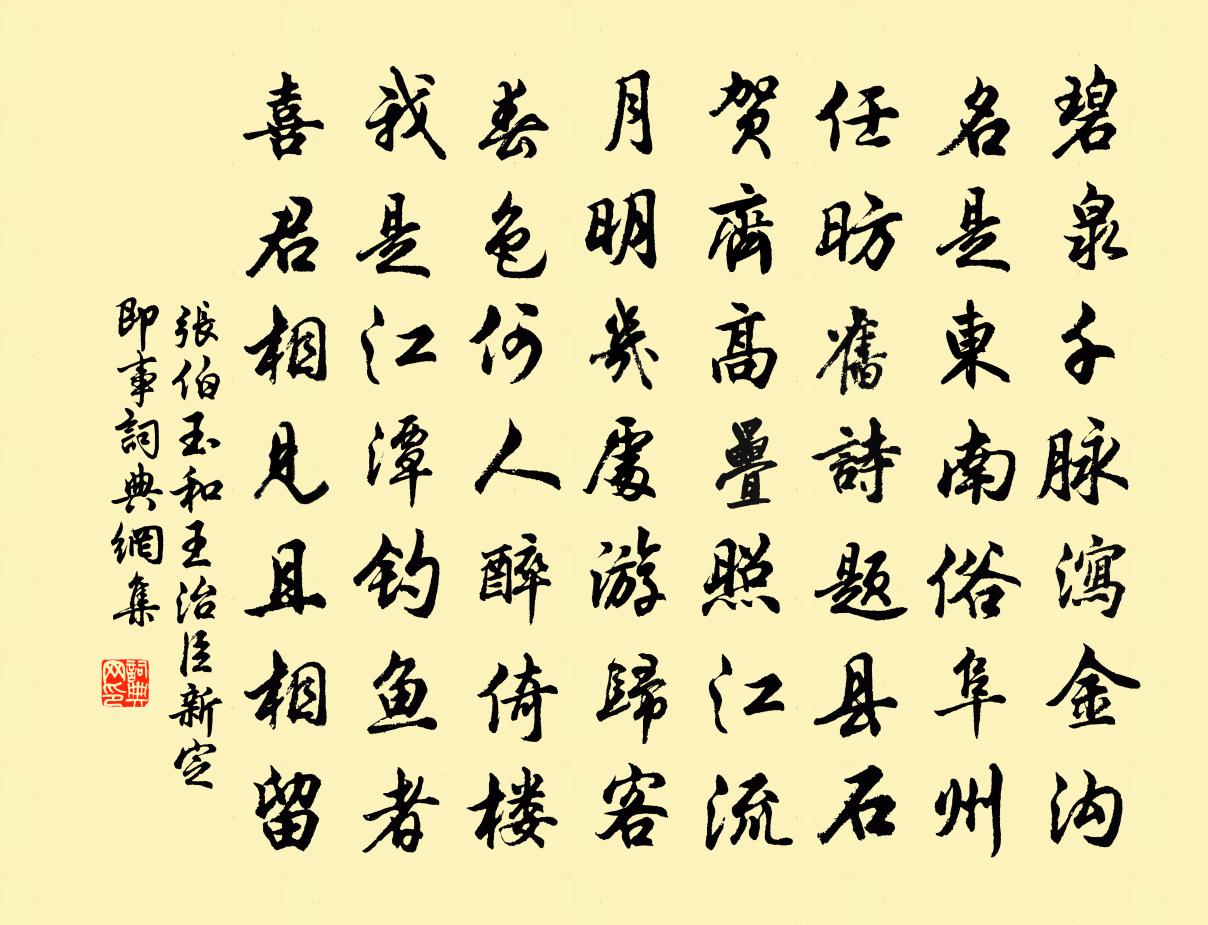 碧泉千脉瀉金沟
名是東南俗阜州
任昉舊詩題县石
贺齊高疊照江流
月明幾處游歸客
春色何人醉倚楼
我是江潭钓鱼者
喜君相見且相留
張伯玉和王治臣新定
即事詞典網集
詞典
网印